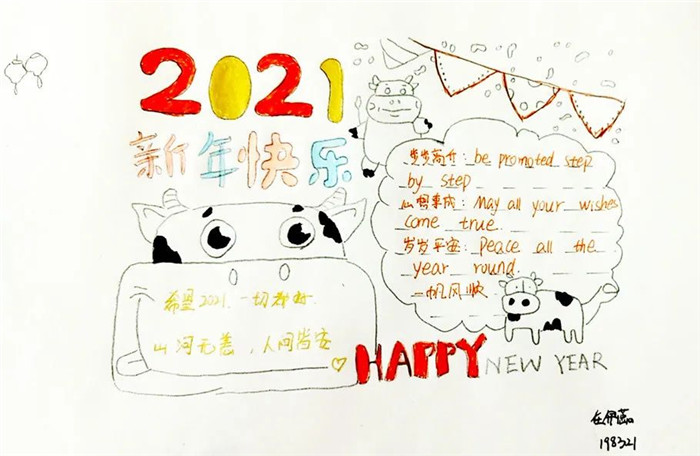 2021
新年快乐
步步高升: be promoted step
by step
心想事成: May all your wishes
come true
岁岁平安: Peace all the
year round.
一帆风
希望2021,一切都好
山河无恙,人间皆安
HAPPY NEW YEAR
198321